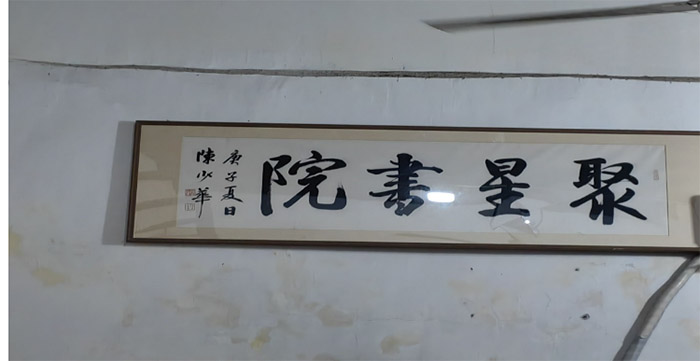 聚星書院
庚子夏日
陳少華